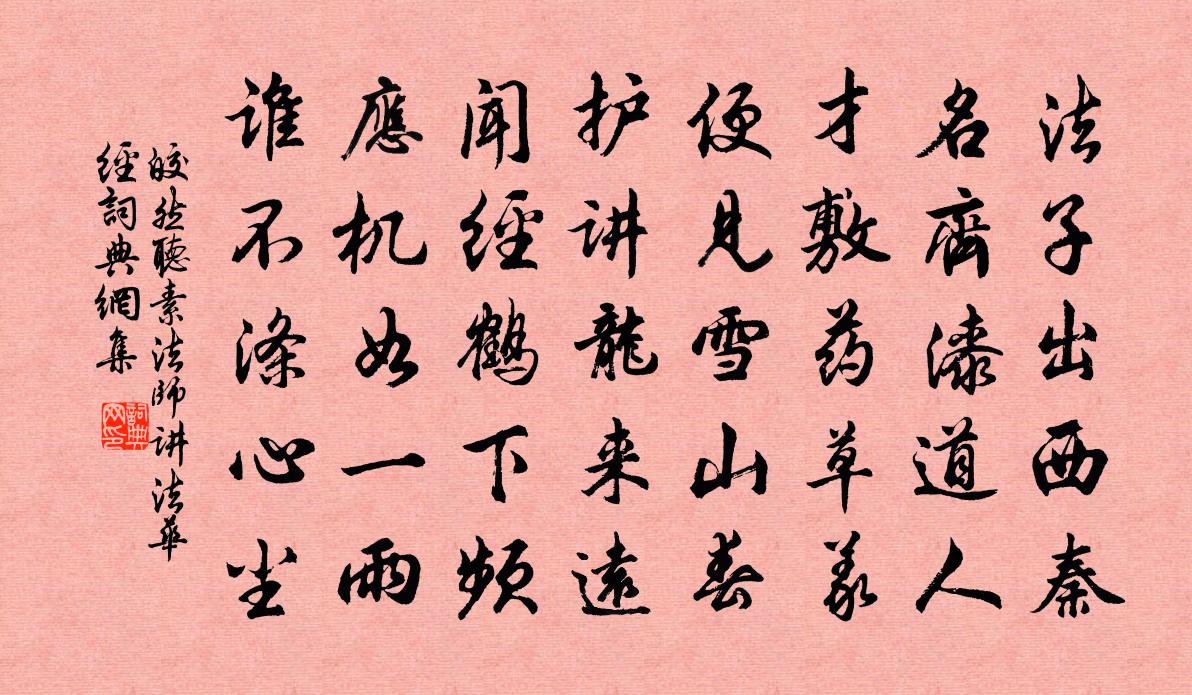 法子出西秦
名齊漆道人
才敷药草義
便見雪山春
护讲龍来遠
闻經鶴下頻
應机如一雨
谁不滌心尘
皎然聽素法師讲法華
經詞典網集
詞典网印